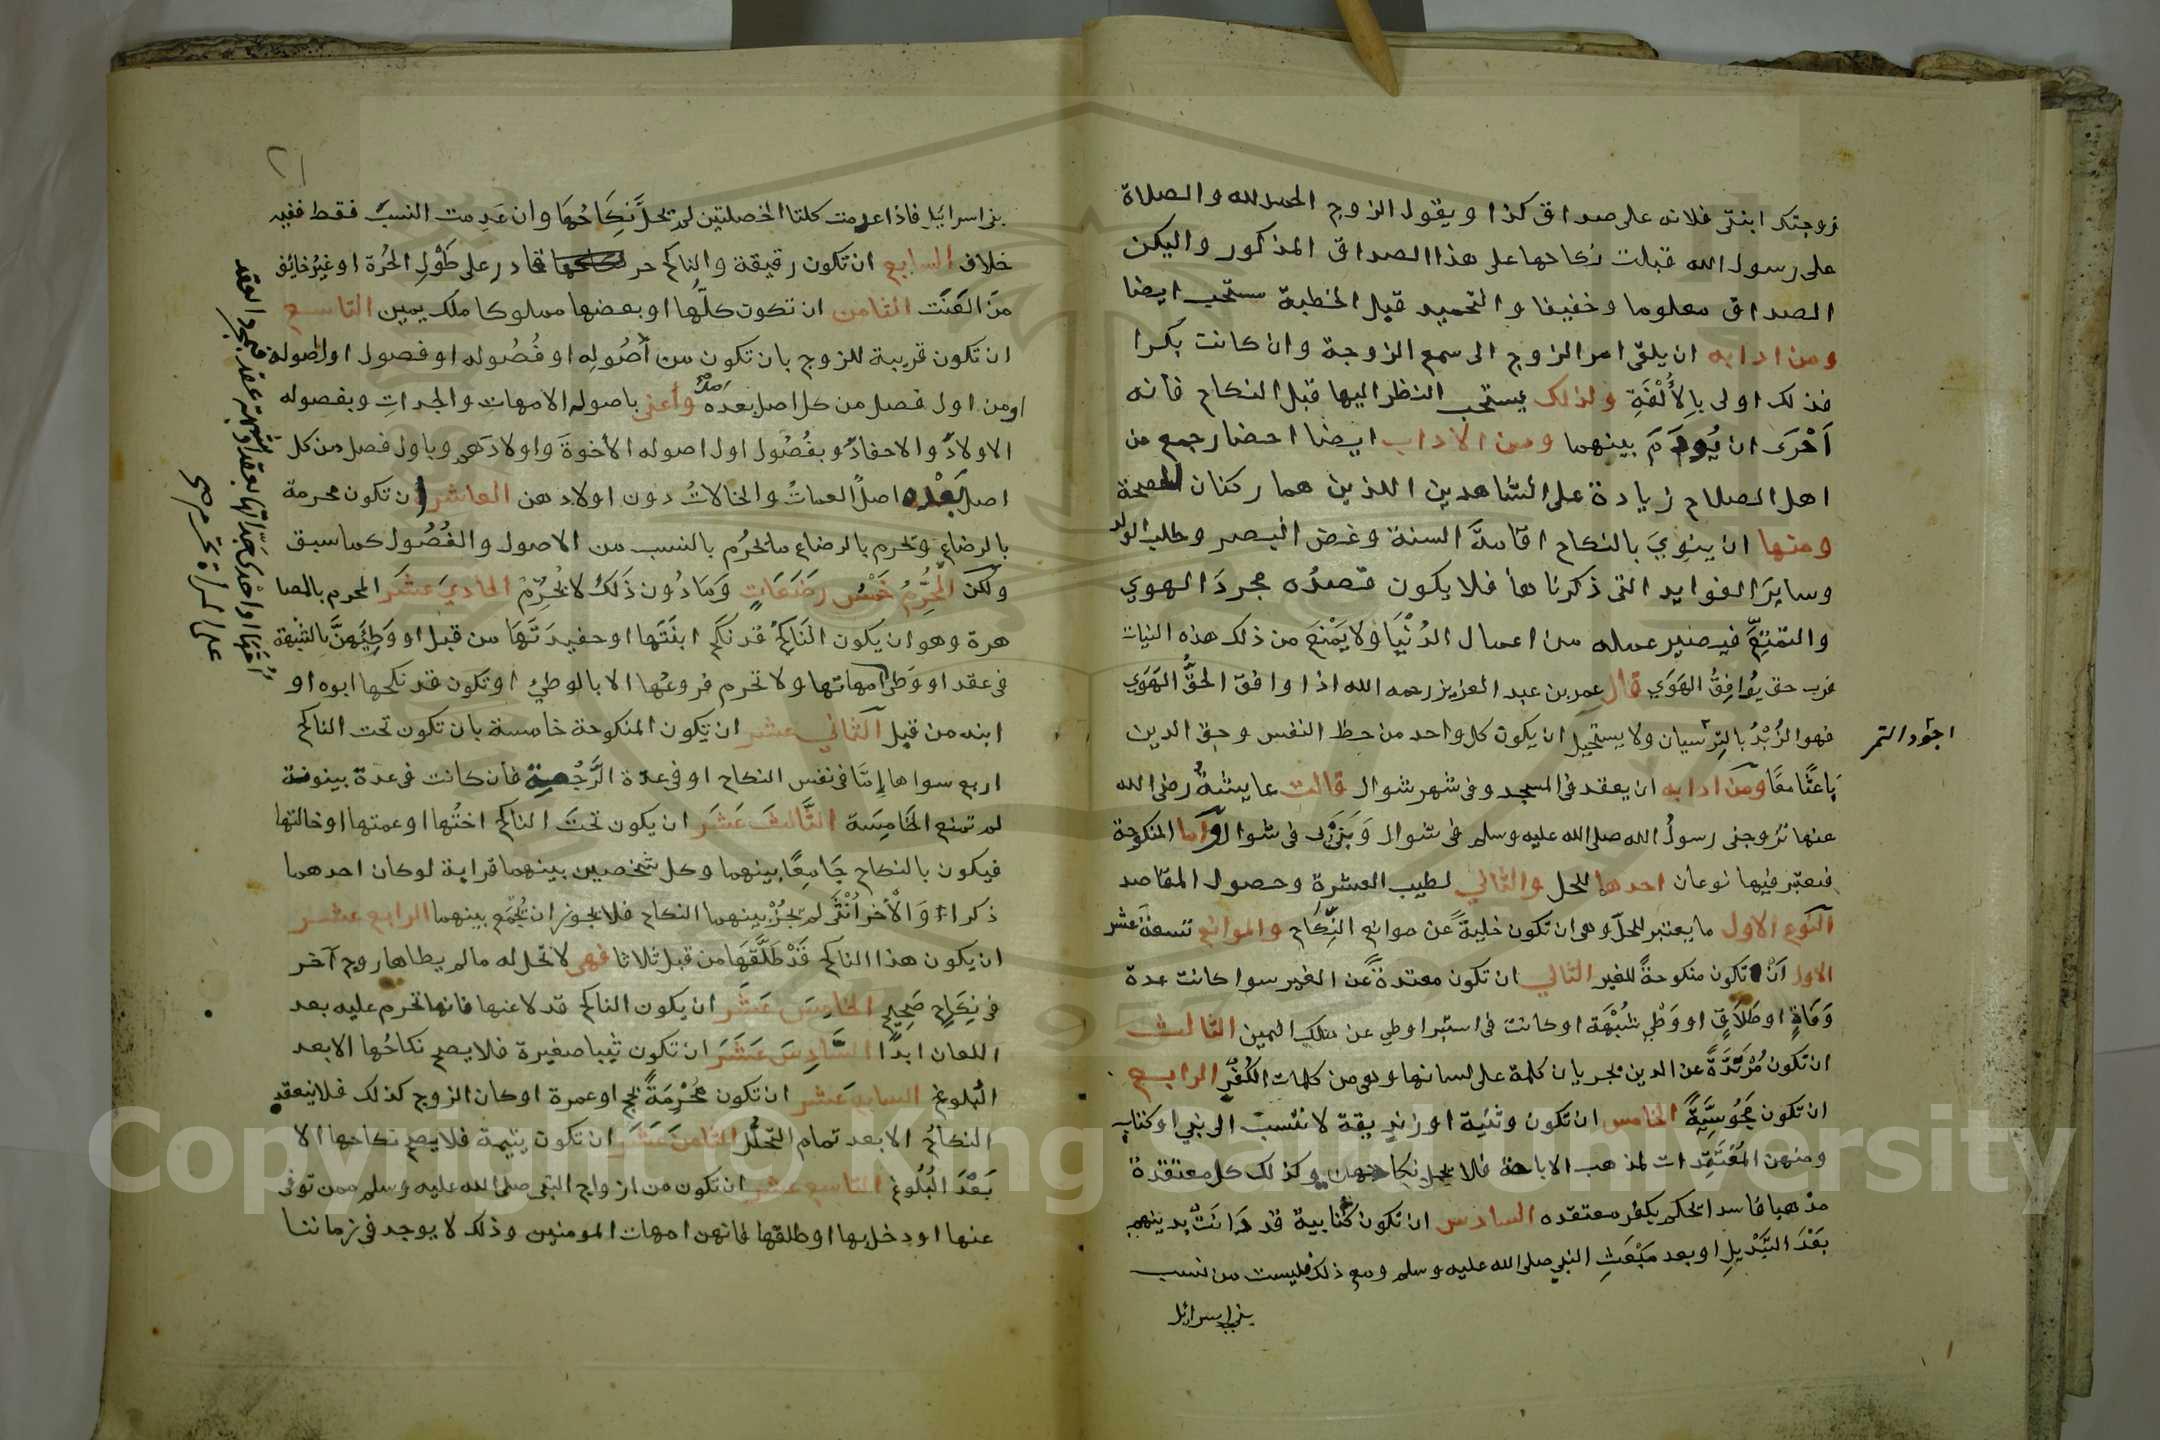 زوجتك ابنتي فلانه على صداق كذا ويقول الزوج الحمد لله والصلاة
على رسول الله قبلت نكاحها على هذا الصداق المذكور واليكن
الصداق معلوما وخفيفا والتحميد قبل الخطبة مستحب ايضا
ومن ادابه ان يلقى امر الزوج الى سمع الزوجة وان كانت بكرا
فذلك اولى بالأُلْفَةِ ولذلك يستحب النظر اليها قبل النكاح فانه
اَحْرَى ان يُودَمَ بينهما ومن الاداب ايضا احضار جمع من
اهل الصلاح زيادة على الشاهدين اللذين هما ركنان للصحة
ومنها ان ينوِيَ بالنكاح اقامةَ السنة وغض البصر وطلب الولد
وسايرَ الفوايد التى ذكرناها فلا يكون قصدُه مجردَ الهوي
والتمتعِّ فيصير عمله من اعمال الدُنْيَا ولا يَمْنَع من ذلك هذه النيات
فرب حق يُوَافِقُ الهَوَي قال عمر بن عبد العزيز رحمه الله اذا وافق الحقُّ الهَوَي
فهو الزُبْدُ بالنِرْسيان ولا يستحيل ان يكون كل واحد من حظ النفس وحق الدين
بَاعثًا معًا ومن ادابه ان يعقد في المسجد وفى شهر شوال قالت عايشةُ رضى الله
عنها تزوجنى رسولُ الله صلى الله عليه وسلم فى شوال وَبَنَى بى فى شوال واما المنكوحة
فيعتبر فيها نوعان احدها للحل والثاني لطيب العشرة وحصول المقاصد
النوع الاول ما يعتبر للحل وهى ان تكون خليةً عن موانع النِّكَاح والموانع تسعة عَشر
الاول اَنْ تكون منكوحةً للغير الثاني ان تكون معتدةً عن الغير سوا كانت عدة
وَفَاةٍ او طَلَاقٍ او وَطْىِ شُبْهَة او كانت فى استبرا وطي عن ملك اليمين الثالث
ان تكون مُرْتَدَّةً عن الدين بجريان كلمة على لسانها وهى من كلمات الكُفْرِ الرابع
ان تكون مَجُوسِيَّةً الخامس ان تكون وثنية او زنديقة لا تنسب الى نبي او كتاب
ومنهن المُعْتَقِدات لمذهب الاباحة فلا يحل نكاحهن وكذلك كل معتقدة
مذهبا فاسدا يحكم بكفر معتقده السادس ان تكون كتابية قد دَانَتْ بدينهم
بَعْدَ التَبْدِيلِ او بعد مَبْعَثِ النبي صلى الله عليه وسلم ومع ذلك فليست من نسب
بني إسرائل
اجود التمر
٢١
بنى اسرائيل فاذا عدمت كلتا الخصلتين لم يحلَّ نِكَاحُهَا وان عَدِمت النسبَ فقط ففيه
خلاف السابع ان تكون رقيقة والناكح حر قادر على طَوْلِ الحُرة او غيرُ خايف
مَنَ العَنَت الثامن ان تكون كلّها او بعضها مملوكا ملك يمين التاسع
ان تكون قريبة للزوج بان تكون من أُصُولِه او فُصُوله او فصول اول اصوله
او من اول فصل من كل اصل بعده اصل وأعنى باصوله الامهات والجداتِ وبفصوله
الاولادَ والاحفادَ وبفُصُول اول اصوله الأخوةَ واولادَهم وباول فصل من كل
اصل بَعْده اصلٌ العماتُ والخالاتُ دون اولادهن العاشر ان تكون محرمة
بالرضاع ويحرم بالرضاع ما يحرُم بالنسب من الاصول والفُصُول كما سبق
ولكن المحُرِّمُ خَمْسُ رَضَعَاتٍ وَمَا دُون ذَلكَ لا يُحُرِّمُ الحاديَ عشَر المحرم بالمصا
هرة وهو ان يكون النَاكِحُ قد نكح ابنَتَها او حفيدَتَهَا من قبل او وَطِيَهنَّ بالشُبهة
فى عقد او وَطَى امهاتها ولا تحرم فروعُها الا بالوطيُ او تكون قد نكحها ابوه او
ابنه من قبل الثاني عشر ان يكون المنكوحة خامسة بان تكون تحت الناكح
اربع سواها إمّا فى نفس النكاح او فى عدّة الرَّجْعِية فان كانت فى عدة بينونة
لم تمنع الخَامِسَة الثَّالثَ عَشَر ان يكون تحتَ الناكح اختُها او عمتها او خالتها
فيكون بالنكاح جَامِعًا بينهما وكل شخصين بينهما قرابة لو كان احدهما
ذكرا وَالأخر اُنْثَى لم يَجُزْ بينهما النكاح فلا يجوز ان يُجْمَع بينهما الرابع عشر
ان يكون هذا الناكح قَدْ طَلَّقَهَا من قبل ثلاثا فهى لا تحل له ما لم يطاها زوج آخر
فى نِكَاحٍ صَحِيحٍ الخَامِسَ عَشَر ان يكون الناكح قد لاعنها فانها تحرم عليه بعد
اللعان ابدًا السَّادِسَ عَشَرَ ان تكون ثيبا صغيرة فلا يصح نكاحُها الا بعد
البُلوغ السابع عَشَر ان تكون مُحْرِمَةً بحج او عمرة او كان الزوج كذلك فلا ينعقد
النكاحُ الا بعد تمام التحلُّل الثامنَ عَشَر ان تكون يتيمة فلا يصح نكاحها الا
بَعْدَ البُلُوغ التاسع عشر ان تكون من ازواج النبى صلى الله عليه وسلم ممن توفى
عنها او دخل بها او طلقها فانهن امهات المومنين وذلك لا يوجد فى زماننا